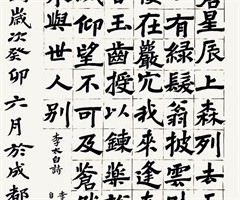 星辰上森列去天
有綠髮翁披雲卧
棲在巖穴我來逢
玉齒授以鍊藥
滅仰望不可及蒼然
永與世人別
李太白詩
歲次癸卯六月於成都